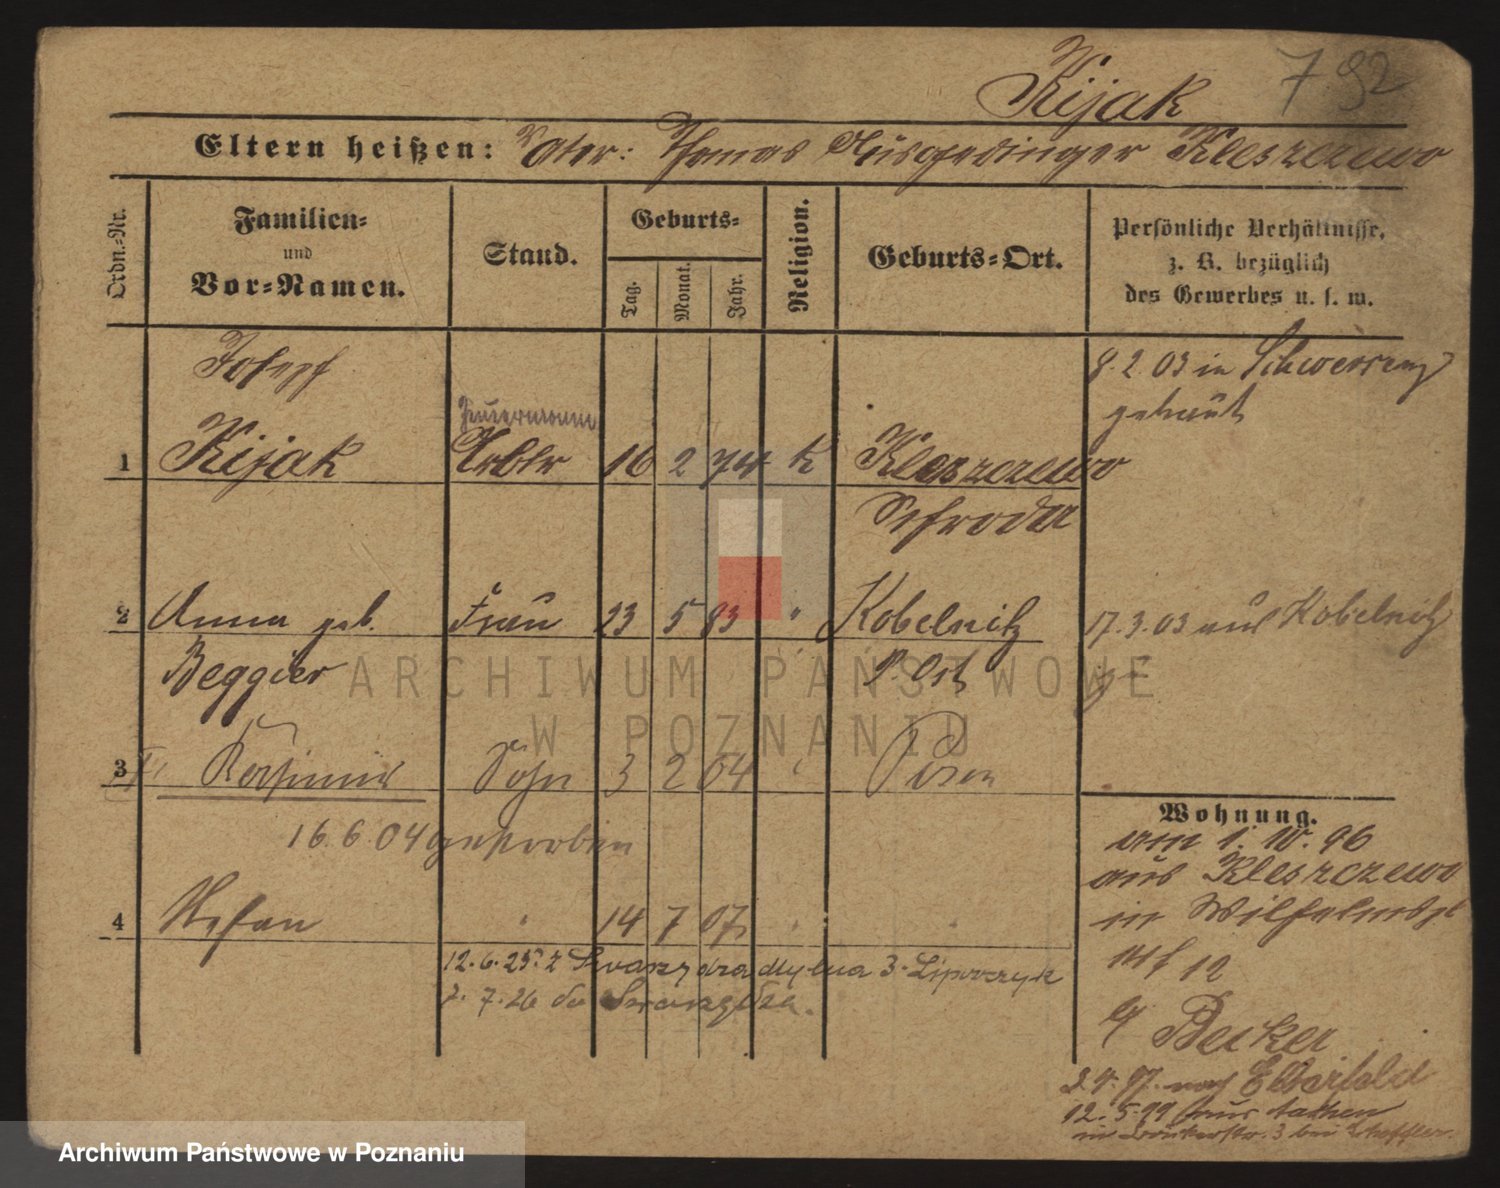 Kijak 792
Eltern heißen: Vater: Thomas Ausgedinger Kleszczewo
Ordn.-Nr.
Familien- und Vor-Namen.
Stand.
Geburts-
Tag. Monat. Jahr.
Religion.
Geburts-Ort.
Persönliche Verhältnisse,
z. B. bezüglich
des Gewerbes u. s. w.
Josepf
8.2 03 in Schwersenz
getraut
Feuermann
1 Kijak Arbtr 16 2 74 K Kleszczewo
Schroda
2 Anna geb. Frau 23 5 83 " Kobelnitz 17.3.03 aus Kobelnitz
Beggier P. Ost
3 Kasimir Sohn 3 2 04 " Posen
16.6.04 gestorben
4 Stefan " 14 7 07 " "
12.6.25 z Swarzędza dłytna 3. Lipowczyk
7.26 do Swarzędza.
Wohnung.
am 1. 10. 96
aus Kleszczewo
in Wilhelmspl
12
b/ Becker
3.4.97. nach Elberfeld
12.5.99 aus Aachen
in Bäckerstr. 3 bei
ARCHIWUM PAŃSTWOWE
W POZNANIU
Archiwum Państwowe w Poznaniu